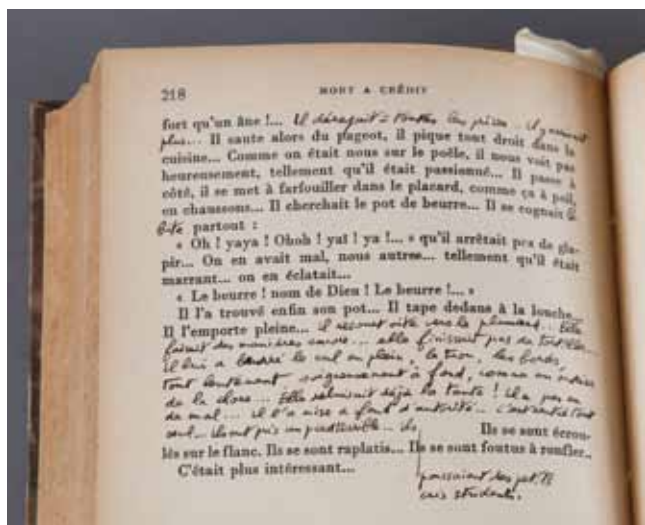 218 MORT A CRÉDIT
fort qu'un âne !... Il dérapait à toutes les prises... il y arrivait
plus... Il saute alors du pageot, il pique tout droit dans la
cuisine... Comme on était nous sur le poêle, il nous voit pas
heureusement, tellement qu'il était passionné... Il passe à
côté, il se met à farfouiller dans le placard, comme ça à poil,
en chaussons... Il cherchait le pot de beurre... Il se cognait la
bite partout :
« Oh ! yaya ! Ohoh ! yaï ! ya !... » qu'il arrêtait pas de gla-
pir... On en avait mal, nous autres... tellement qu'il était
marrant... on en éclatait...
« Le beurre ! nom de Dieu ! Le beurre !... »
Il l'a trouvé enfin son pot... Il tape dedans à la louche...
Il l'emporte pleine... il raccourt vite vers le plumard... Elle
faisait des manières encore... elle finissait pas de tortiller...
il lui a beurré le cul en plein, le tron, les bords,
tout lentement soigneusement à fond, comme un
de la chose... Elle reluisait déjà la tante ! il a pas eu
de mal... il l'a mise à fond d'autorité... c'est rentré tout
seul... ils ont pris un pied terrible... ils Ils se sont écrou-
lés sur le flanc. Ils se sont raplatis... Ils se sont foutus à ronfler..
C'était plus intéressant...
poussaient des petits
cris stridents.